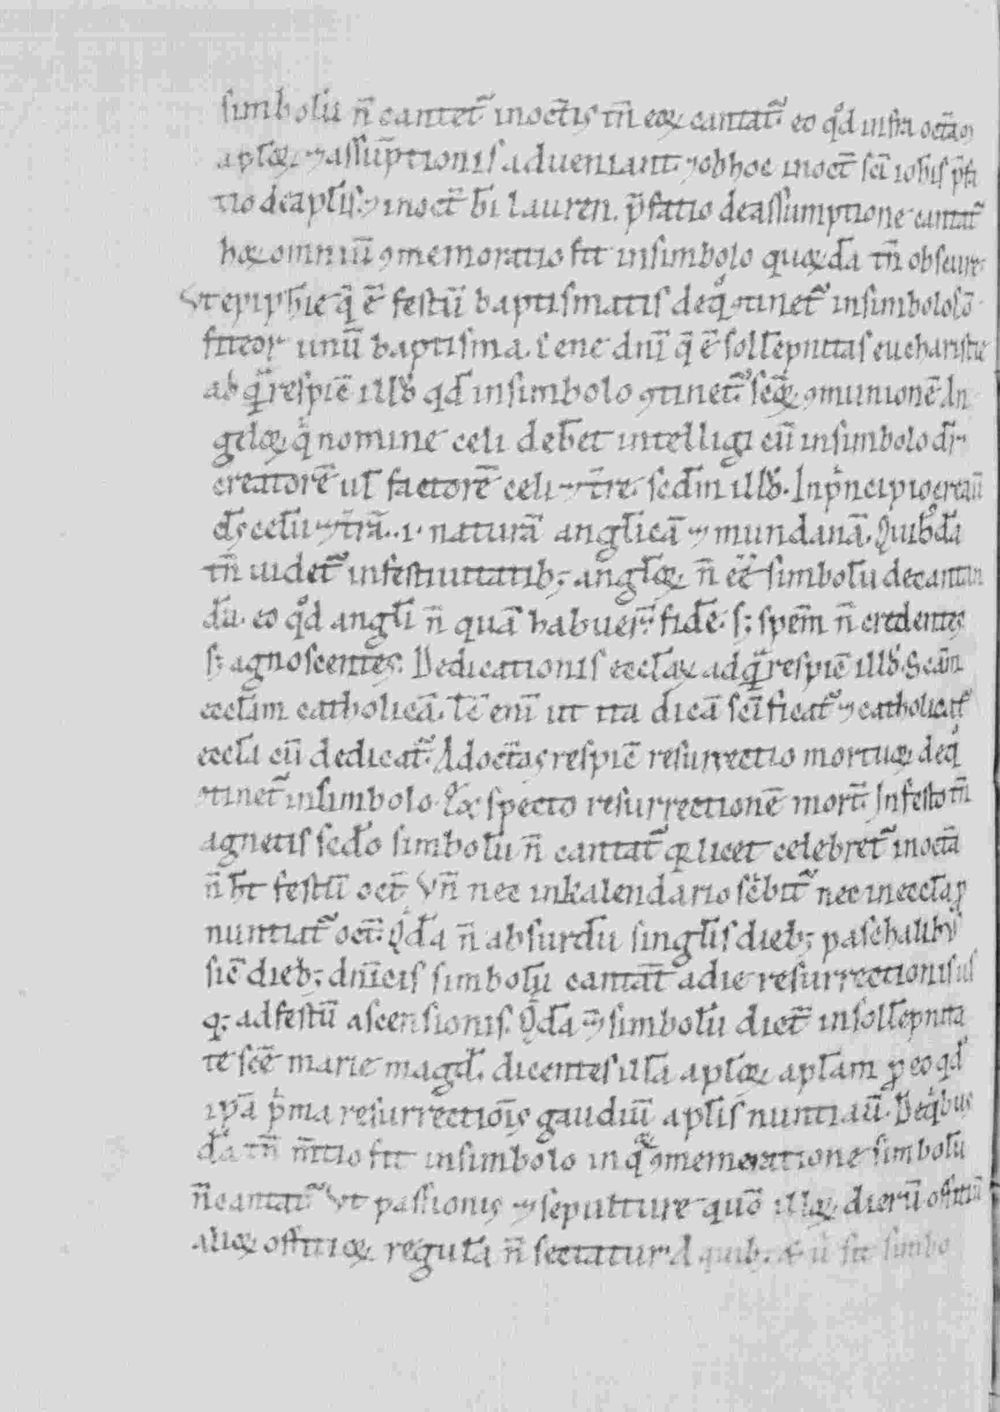 simbolū n̄ cantet᷑ in oct̄is tm̄ eoꝝ cantat᷑ eo qd̊ infra octāꝯ
aplo̅ꝝ ⁊ assūptionis adveniant. ⁊ ob hoc in oct̄ sc̄i ioh̄is p̄fa
tio de aplīs. ⁊ in oct̄ b̄i lauren. p̄fatio de assumptione cantat᷑
hoꝝ omniū ꝯmemoratio fit in simbolo quoꝝdā tm̄ obscure.
Vt epiph̄ie q̄ ē festū baptismatis de q̊ ꝯtinet᷑ in simbolo ꝯ̄
fiteor unū baptisma. Cene dn̄i q̄ ē sollēpnitas eucharistie
ad q̄ respic̄ illḋ qd̄ in simbolo ꝯtinet᷑ sc̄oꝝ ꝯmunionē An
gelo̅ꝝ q̇ nomine celi debet intelligi cū in simbolo dr̄
creatorē ul̄ factorē celi ⁊ t̄re. scdm̄ illḋ. In ṗncipio creauit
d̄s celū ⁊ t̄rā. .i. naturā anglicā ⁊ mundanā. Quibdā
tm̄ uidet᷑ in festiuitatib; anglo̅ꝝ n̄ ēē simbolū decantan
dū. eo qd̊ angli n̄ quā habuer̄ fidē. s; spem̄ n̄ credentes
s; agnoscentes. Dedicationis eccl̄aꝝ ad q̄ respic̄ illḋ. Scām
eccl̄am catholicā. Tc̄ eni̅ ut ita dicā sc̄ificat᷑ ⁊ catholicat᷑
eccl̄a cū dedicat᷑. Ad octāas respic̄ resurrectio mortuoꝝ de q̊
ꝯtinet᷑ in simbolo. Expecto resurrectionē mort̄. In festo tm̄
agnetis scd̄o simbolū n̄ cantat᷑ qꝛ licet celebret᷑ in octā
n̄ h̄t festū oct̄. Vn̄ nec in kalendario sċbit᷑ nec in eccl̄a ꝓ
nuntiat᷑ oct̄. Qd̄a n̄ absurdū singlis dieb; paschalib;
sic̄ dieb; dn̄icis simbolū cantāt a die resurrectionis us
q; ad festū ascensionis. Qd̄a ⁊ simbolū dict̄ in sollēpnita
te sc̄e marie magd̄. dicentes illā aplo̅ꝝ aplam ꝓ eo qd̄
ipā ṗma resurrectiōis gaudiū aplis nuntiau̅. De q̇bus
dā tn̄ m̄tio fit in simbolo in q̊ꝝ ꝯmemoratione simbolū
n̄ cantat᷑ Vt passionis ⁊ sepulture quō illoꝝ dierū offitiū
alioꝝ offitioꝝ regulā n̄ sectatur. A quib; &amp; u̇ sit simbo